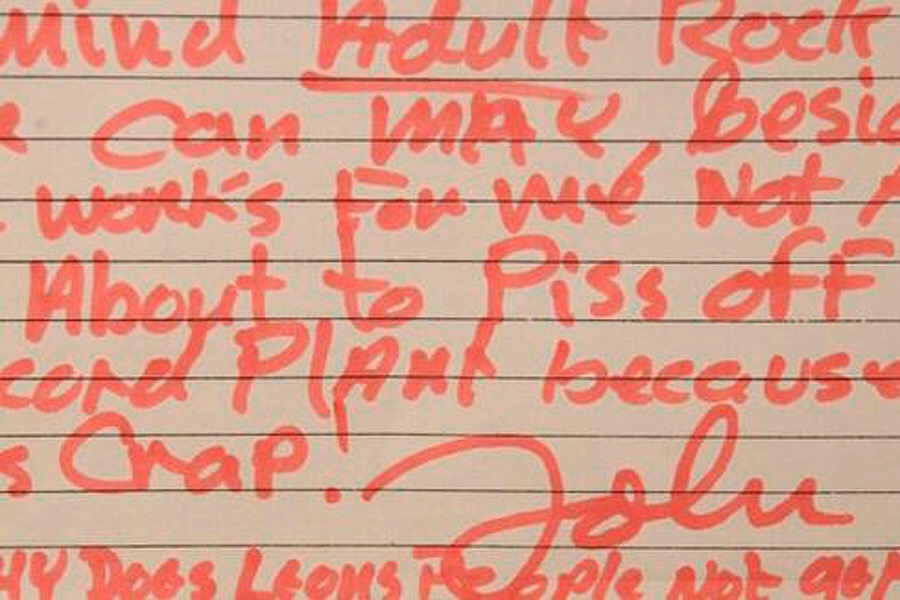 mind Adult Rock
can may besid
work's For me Not A
About to Piss off
cord Plant because
s Crap! John
HY Does Leons People Not get